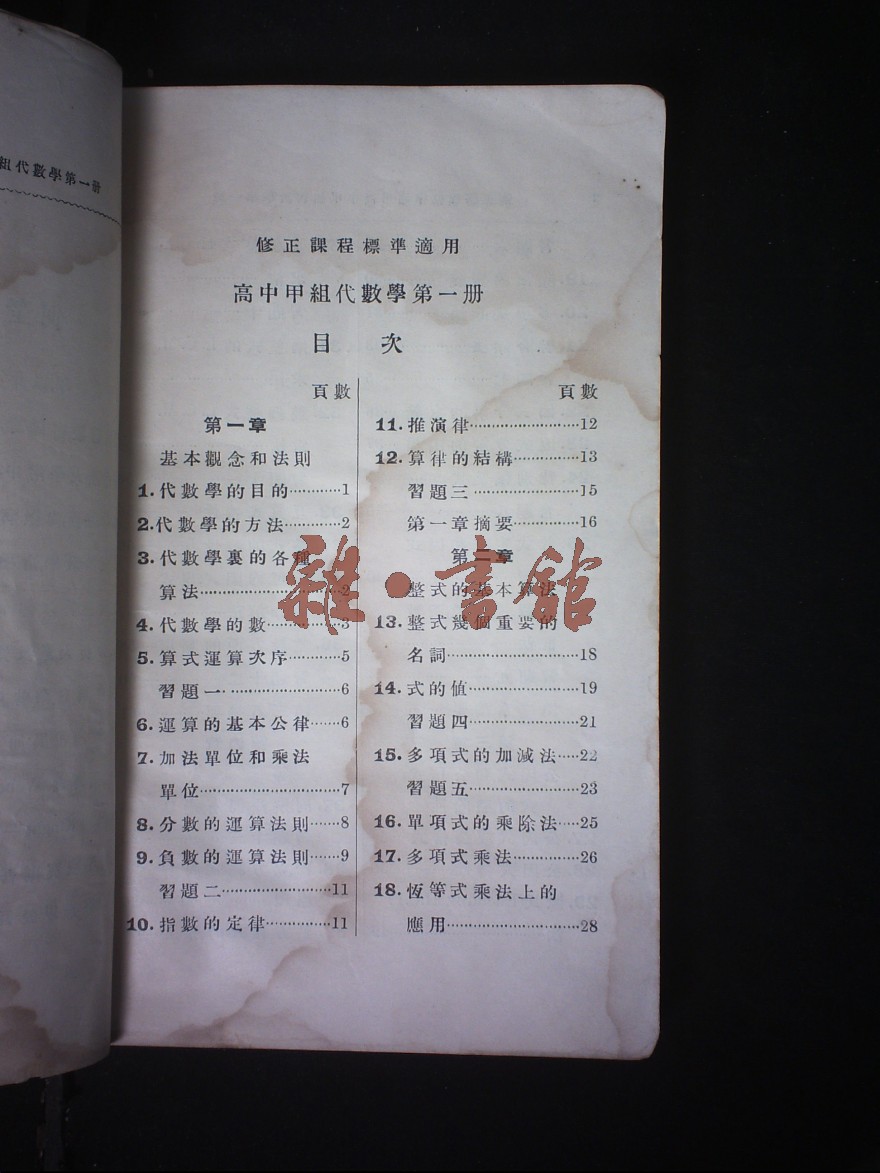 組代數學第一册
修正課程標準適用
高中甲組代數學第一册
目 次
頁數
第一章
基本觀念和法則
1.代數學的目的…………1
2.代數學的方法…………2
3.代數學裏的各種
算法……………………2
4.代數學的數……………3
5.算式運算次序…………5
習題一…………………6
6.運算的基本公律……6
7.加法單位和乘法
單位……………………7
8.分數的運算法則……8
9.負數的運算法則……9
習題二…………………11
10.指數的定律…………11
頁數
11.推演律…………………12
12.算律的結構……………13
習題三…………………15
第一章摘要……………16
第二章
整式的基本算法
13.整式幾個重要的
名詞……………………18
14.式的值…………………19
習題四…………………21
15.多項式的加減法……22
習題五…………………23
16.單項式的乘除法……25
17.多項式乘法……………26
18.恆等式乘法上的
應用……………………28
雜·書館